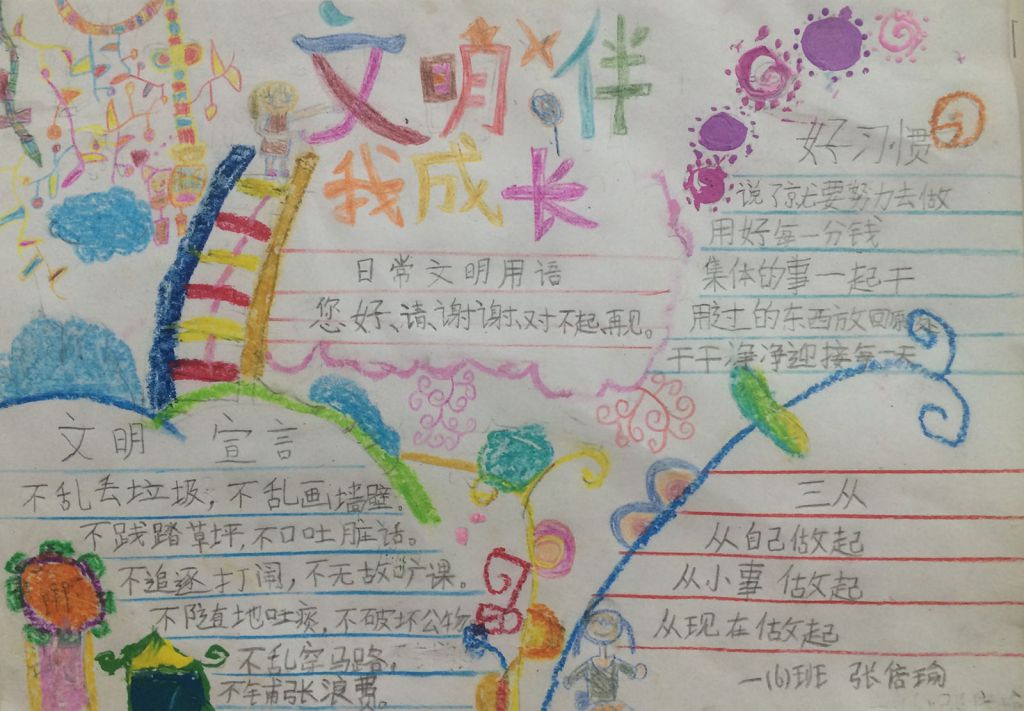 文明伴
我成长
日常文明用语
您好、请、谢谢、对不起、再见。
好习惯
说了就要努力去做
用好每一分钱
集体的事一起干
用过的东西放回原处
干干净净迎接每一天
文明 宣言
不乱丢垃圾，不乱画墙壁。
不践踏草坪，不口吐脏话。
不追逐打闹，不无故旷课。
不随地吐痰，不破坏公物
不乱穿马路，
不铺张浪费。
三从
从自己做起
从小事 做起
从现在做起
一(6)班 张倍瑜